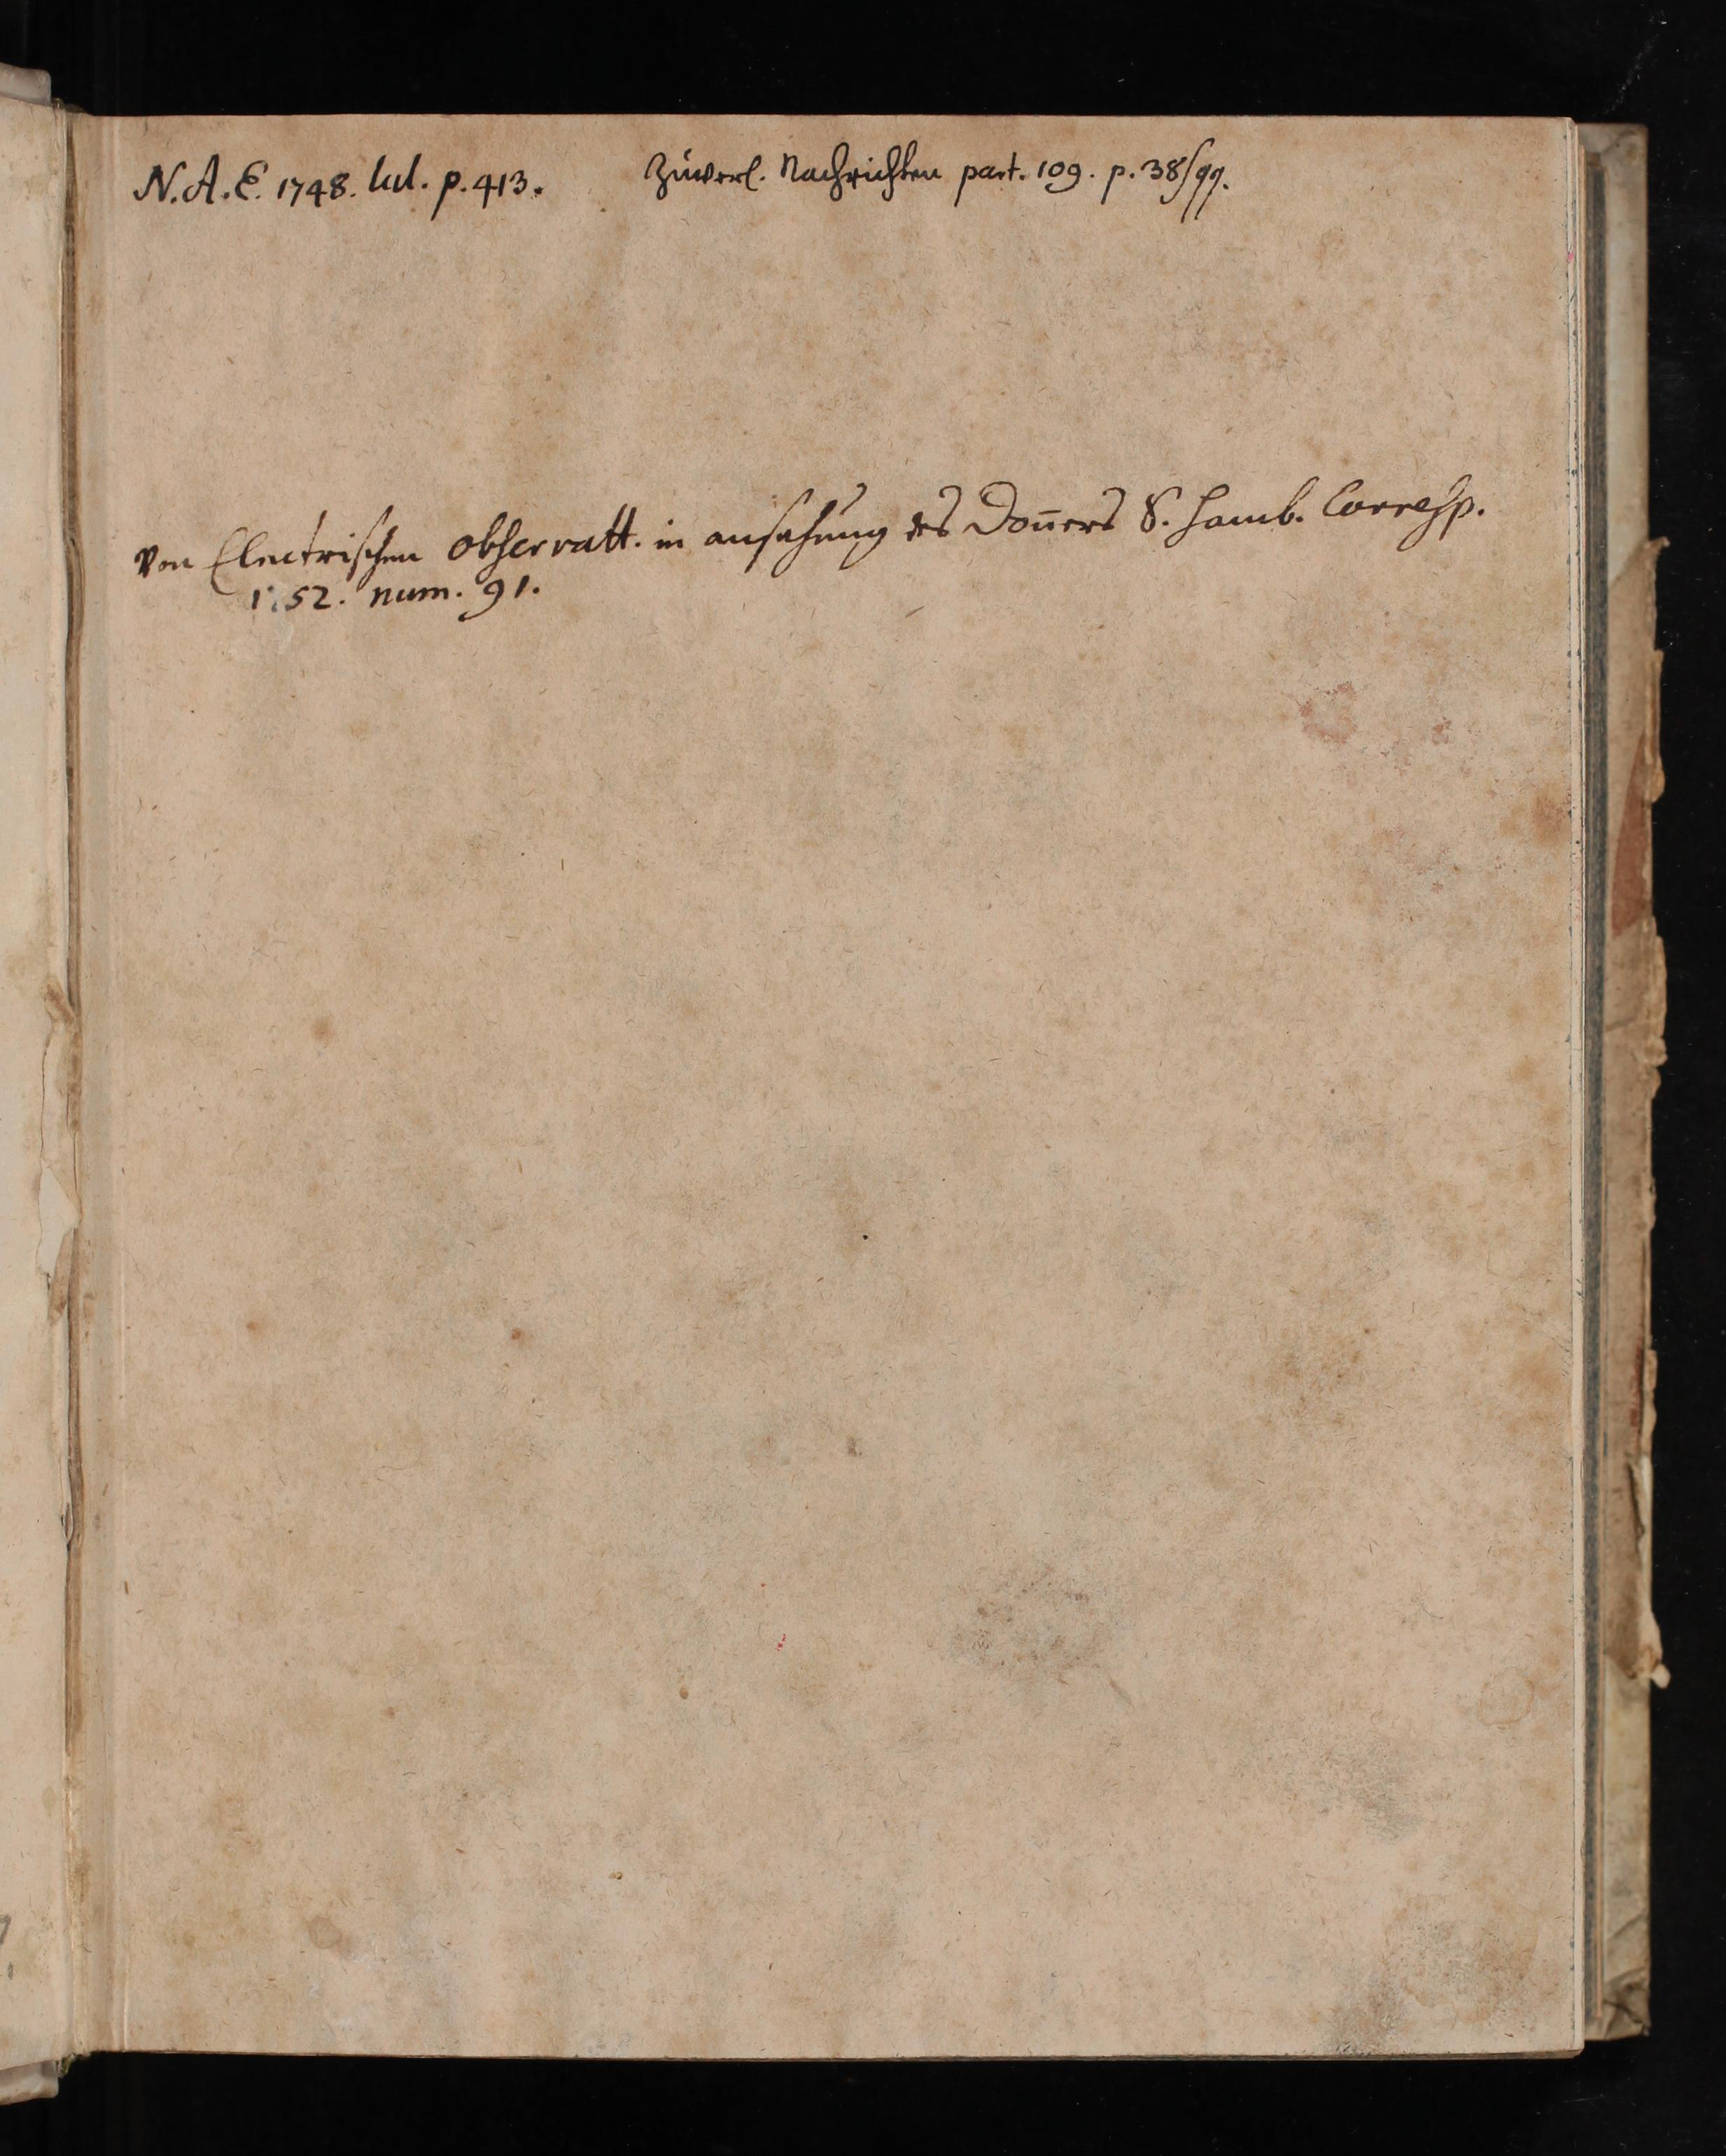 N. A. E. 1748. Iul. p. 413. Zuverl. Nachrichten part. 109. p. 38 sqq.
Von Electrischen observatt. in ansehung des Doñers S. Hamb. Corresp.
1752. num. 91.